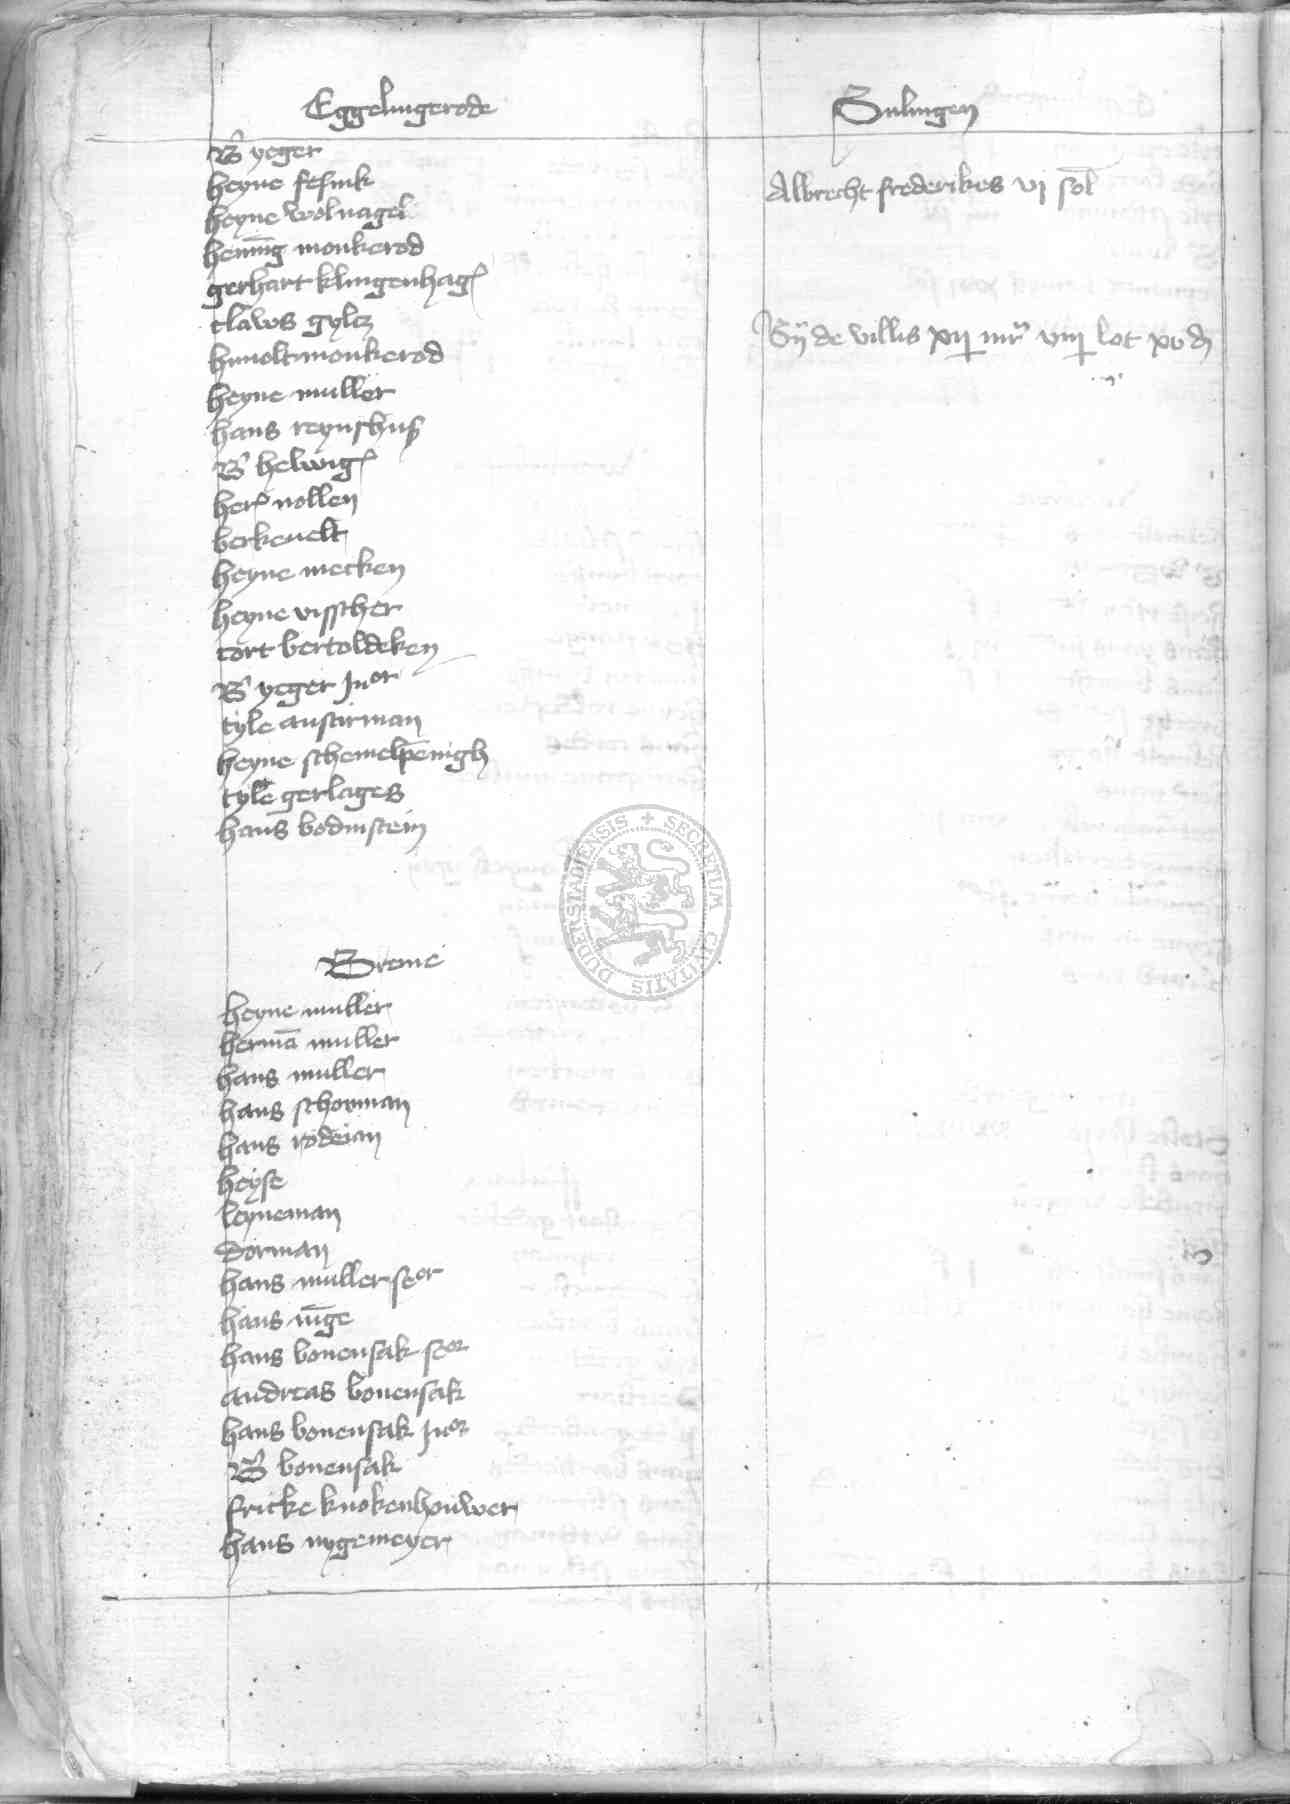 Eggelingerode
B yeger
heyne fesink
heyne wolnagel
hennīg monkerod
gerhart klingenhag
clawes gylcz
hunolt monkerod
heyne muller
hans reynshus
B helwig
her nollen
berkeuelt
heyne mecken
heyne visscher
cort bertoldeken
B yeger Juor
tyle austirman
heyne schemelpēnigh
tyle gerlages
hans bodinstein
Breme
heyne muller
hermā muller
hans muller
hans schorman
hans rodeian
heyse
leyneman
dorman
hans muller seor
hans
hans bonensak seor
andreas bonensak
hans bonensak Juor
B bonensak
fricke knokenhouwer
hans nygemeyer
Sulingen
Albrecht frederikes vi sol
de villis xij mr viij lot xv d
SECRETUM CIVITATIS DUDERSTADIENSIS